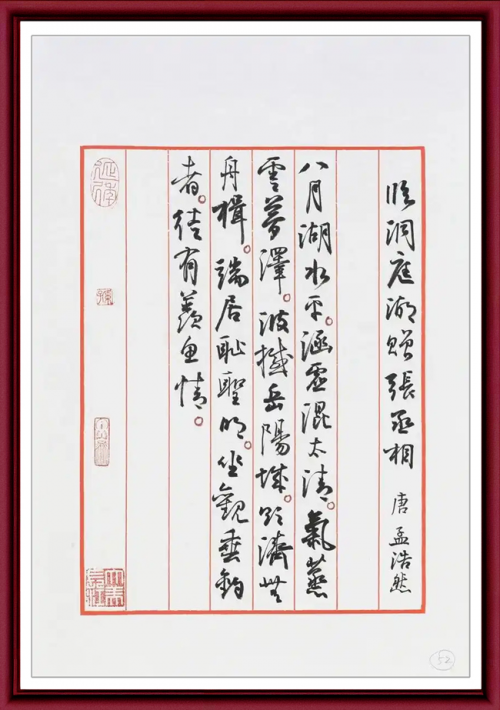 臨洞庭湖贈張丞相 唐 孟浩然
八月湖水平。涵虛混太清。氣蒸
雲夢澤。波撼岳陽城。欲濟無
舟楫。端居耻聖明。坐觀垂釣
者。徒有羨魚情。
52